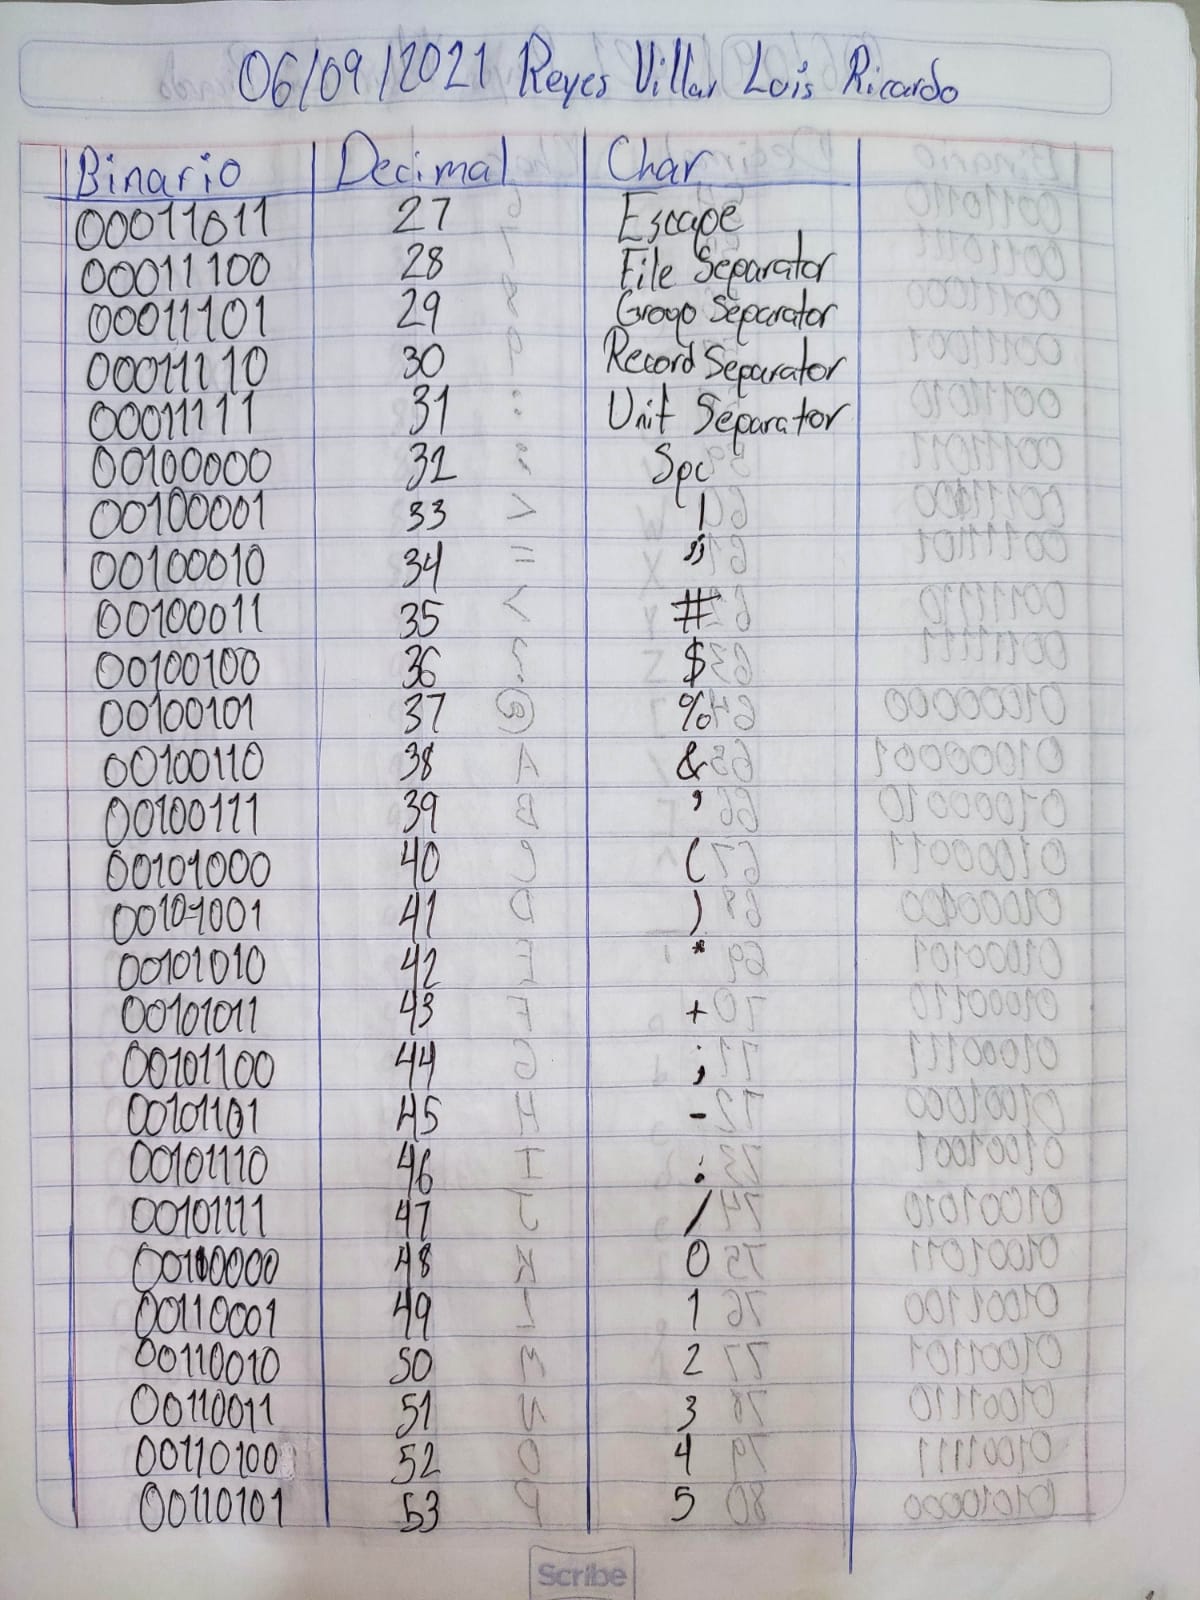 06/09/2021 Reyes Villar Luis Ricardo
Binario Decimal Char
00011011 27 Escape
00011100 28 File Separator
00011101 29 Group Separator
00011110 30 Record Separator
00011111 31 Unit Separator
00100000 32 Spc
00100001 33 !
00100010 34 "
00100011 35 #
00100100 36 $
00100101 37 %
00100110 38 &
00100111 39 '
00101000 40 (
00101001 41 )
00101010 42 *
00101011 43 +
00101100 44 ;
00101101 45 -
00101110 46 :
00101111 47 /
00110000 48 0
00110001 49 1
00110010 50 2
00110011 51 3
00110100 52 4
00110101 53 5
Scribe